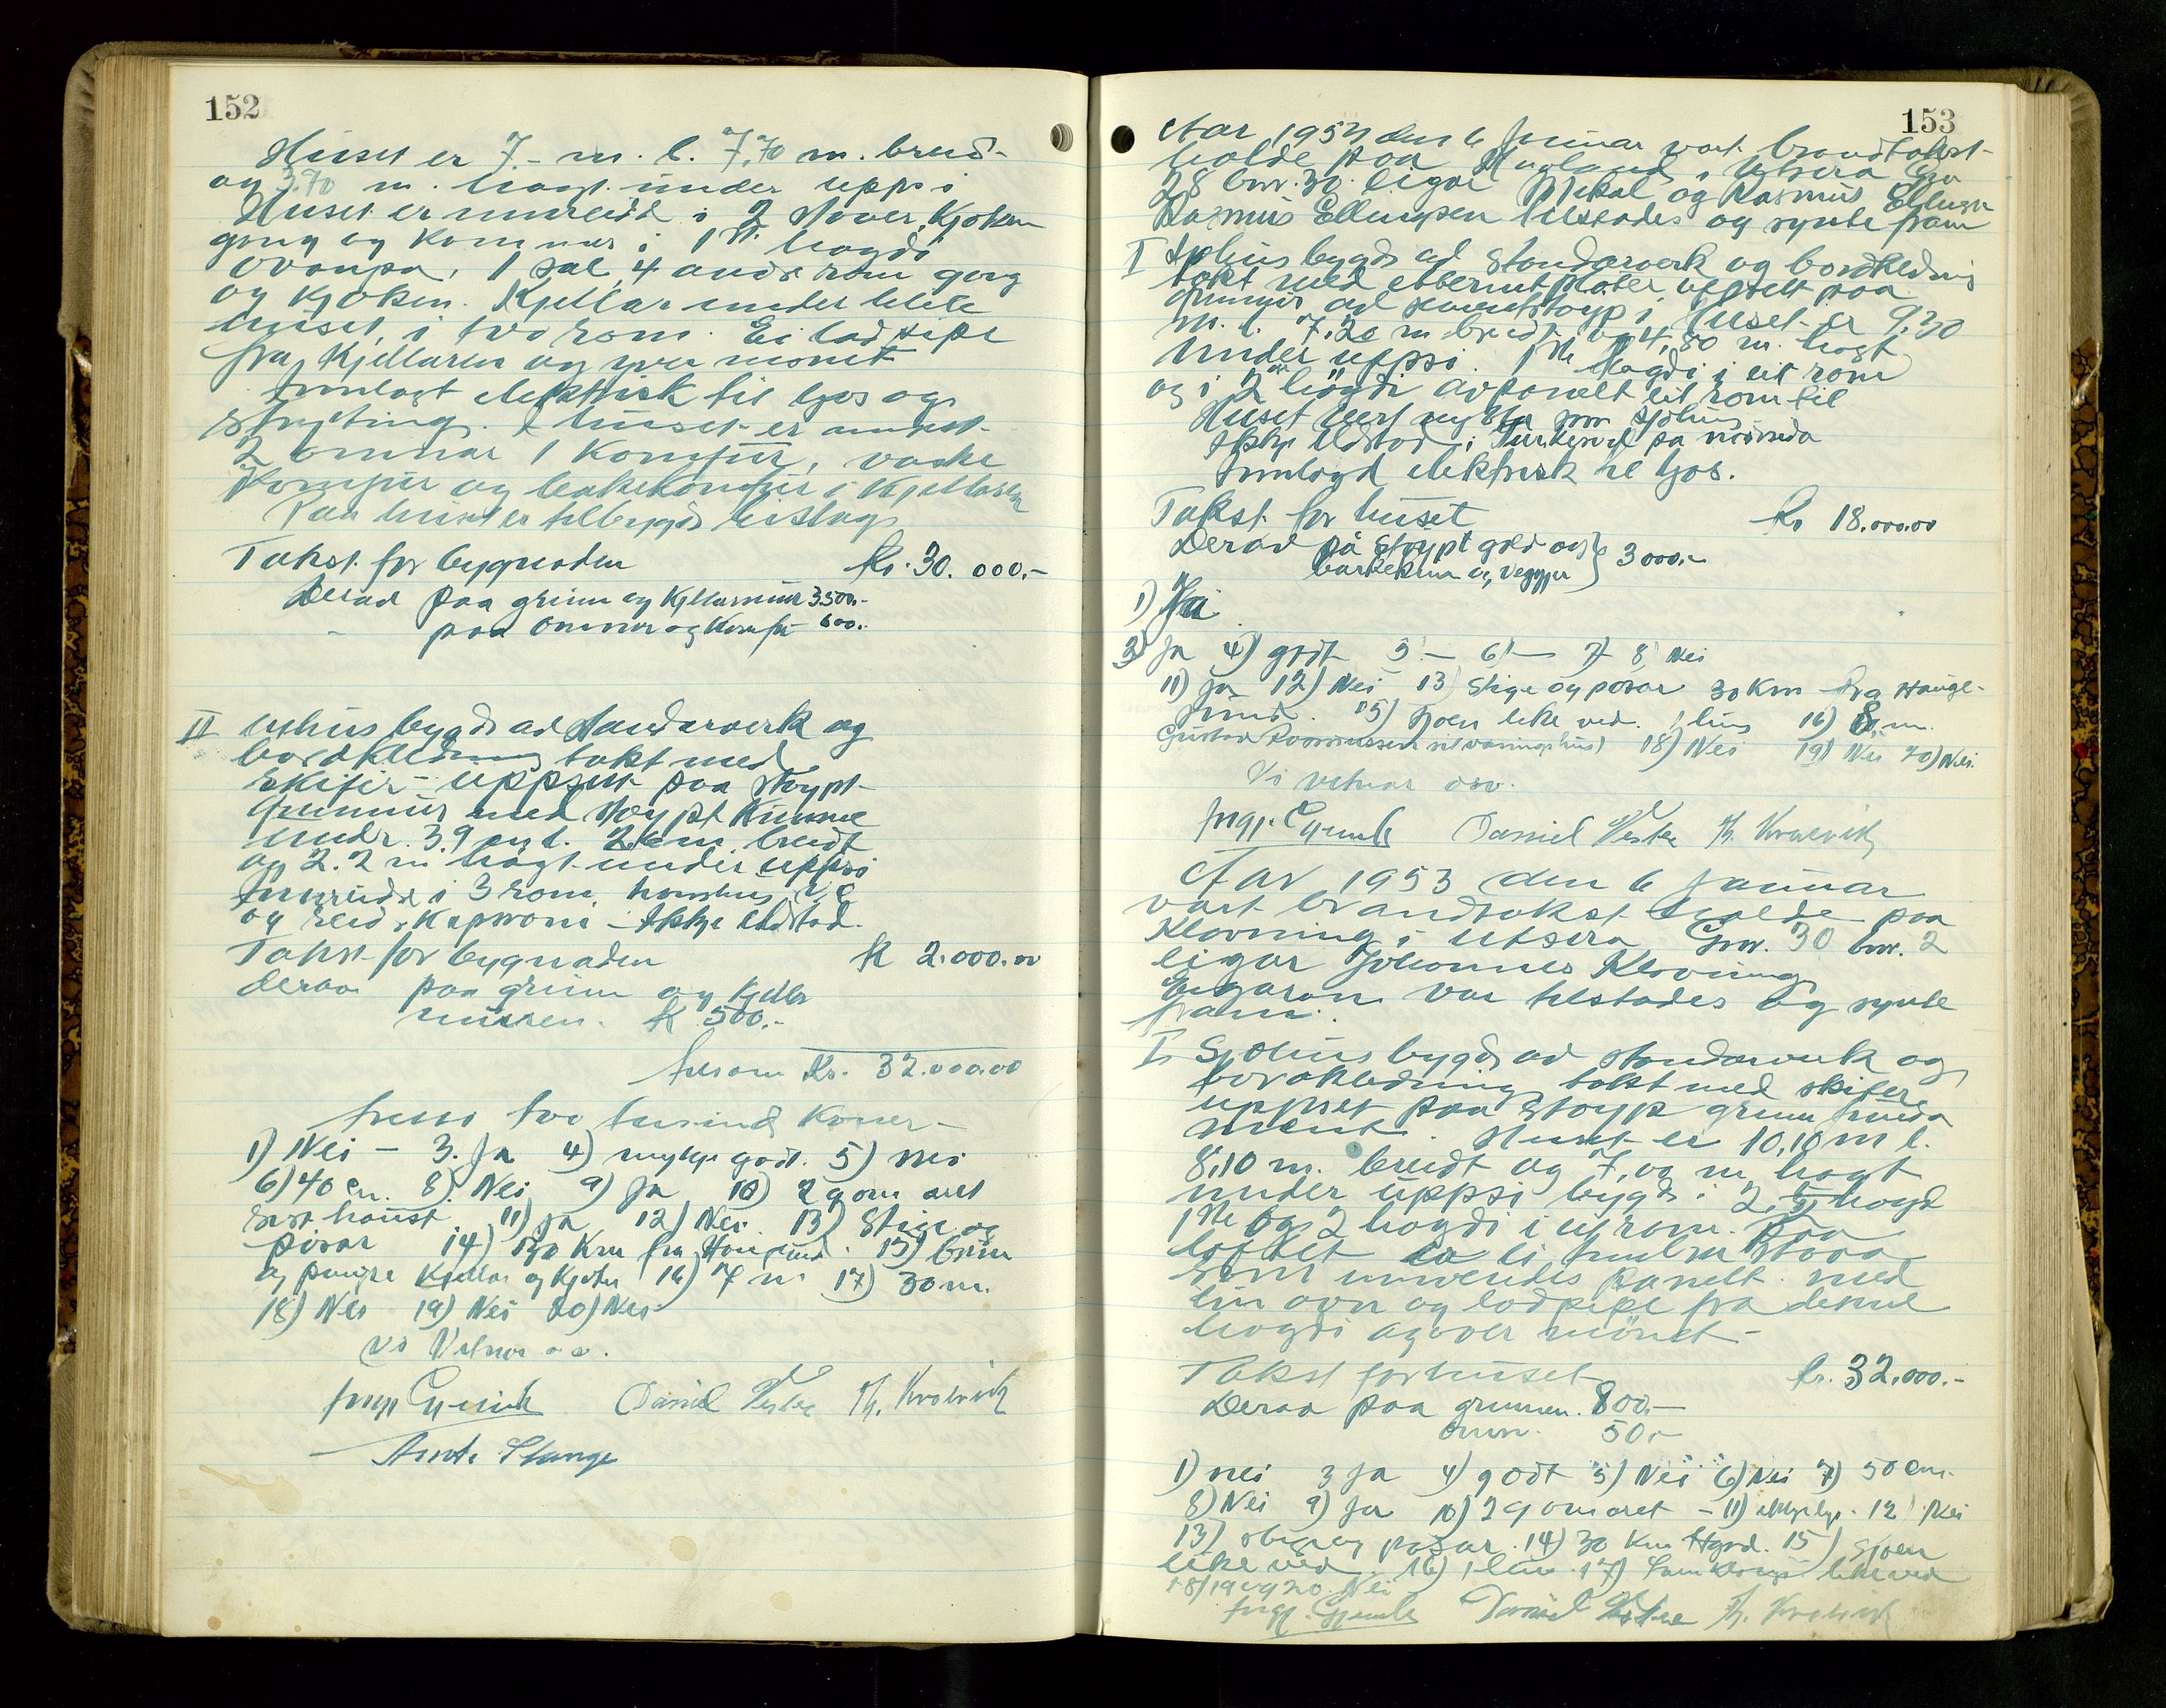 152
Huset er 7.- m. l. 7,70 m. breid-
og 3.70 m. høgt under uppsi
Huset er innreidd i 2 stover, Kjøken
gong og kammer i 1ste høgdi
ovanpa, 1 sal, 4 andre rom gang
og kjøken. Kjellar under heile
huset, i tvo rom. Ei lodpipe
fra Kjellaren og yver mønet
Innlagt elektrisk til ljos og
I huset er
2 omnar 1 Komfur, vaske
Komfur og bakekomfur i Kjellaren
Paa huset er tilbygd bislag
Takst for bygnaden kr. 30.000.-
Derav paa grunn og Kjellarmur 3500.-
- paa omnar og Komfur 600.-
II Uthus bygd av standarverk og
bordkledning takt med
skifer - uppsett paa støypt-
grunnur med støypt Kumme
under. 3.9 m l. 2.6 m breidt
og 2.2 m høgt under uppsi
Innreidd i 3 rom, W.C
og reidskapsrom - Ikkje eldstad.
Takst for bygnaden kr 2.000.00
derav paa grunn og Kjellar
muren. Kr 500.-
Kr. 32.000.00
tvo tusind Kroner-
1) Nei - 3. Ja 4) mykje godt. 5) Nei
6) 40 cm. 8). Nei 9) Ja 10) 2 g om aret
haust 11) Ja 12) Nei. 13) Stige og
pøsar 14) 30 Km fra Haugesund. 15) brønn
og pumpe Kjellar og Kjøken 16) 7 m 17) 30 m.
18) Nei 19) Nei 20) Nei
Vi Vitnar o.s.
Daniel Th. Kvalvik
153
Aar 1953 den 6 Januar vart brandtakst-
halde paa i Utsira Gnr
28 bnr. 30. Eigar Mikal og Rasmus Ellingsen
Rasmus Ellingsen tilstades og synte fram
I Sjøhus bygd ad standarverk og bordkledning
takt med eternitplater uppsett paa
grunnur ad sementstøyp i. Huset er 9.30
m. l. 7.20 m breidt og 4,80 m. høgt
under uppsi. 1ste Høgdi i eit rom
og i 2dre høgdi avpanelt eit rom til
Huset vert nytta som sjøhus
Ikkje Eldstad i
Innlagd elektrisk til ljos.
Takst for huset Kr 18.000.00
Derav på støypt golv og
3000.-
1) Nei
3) Ja 4) godt 5 - 6) - 7) 8) Nei
11) Ja 12) Nei 13) Stige og pøsar 30 Km fra Hauge-
sund. 15) Sjøen like ved. 16) 8 m.
Gustav Rasmussen 18) Nei 19) Nei 20) Nei.
Vi vitnar osv.
Daniel Th. Kvalvik
Aar 1953 den 6 Januar
vart brandtakst halde paa
Klovning i Utsira Gnr. 30 bnr. 2
eigar Johannes Klovning
Eigaren var tilstades og synte
fram.
I Sjøhus bygd ad standarverk og
bordkledning takt med skifer
uppset paa støyp grunn funda
ment. Huset er 10,10 m l.
8,10 m. breidt og 7,00 m høgt
under uppsi bygd i 2 1/2 høgd
1ste og 2 høgdi i eit rom. Paa
loftet er ei stova
som innvendig panelt. med
ein ovn og lodpipe fra denne
høgdi og over mønet-
Takst for huset kr. 32.000.-
Derav paa grunnen. 800.-
omn. 50.-
1) nei 3 Ja 4) godt 5) Nei 6) Nei 7) 50 cm.
8) Nei 9) Ja 10) 2 g om aret - 11) ikkje lys. 12) Nei
13) stige og pøsar. 14) 30 Km Hgsd. 15) Sjøen
like ved 16) 17) like ved
18) 19 og 20. Nei
Daniel Th. Kvalvik